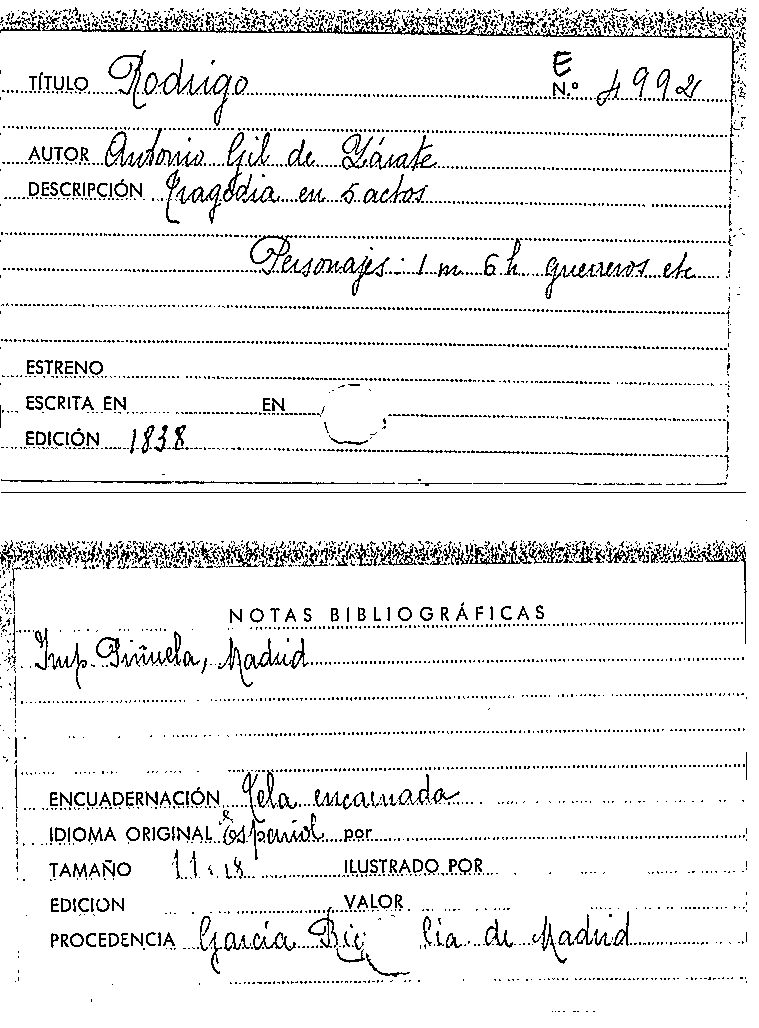 E
TÍTULO Rodrigo N.º 4992
AUTOR Antonio Gil de Zárate
DESCRIPCIÓN Tragedia en 5 actos
Personajes: 1 m 6 h guerreros etc
ESTRENO
ESCRITA EN EN
EDICIÓN 1838
NOTAS BIBLIOGRÁFICAS
Imp. Piñuela, Madrid
ENCUADERNACIÓN Tela encarnada
IDIOMA ORIGINAL Español por
TAMAÑO 11 . 18 ILUSTRADO POR
EDICION VALOR
PROCEDENCIA García Ric de Madrid